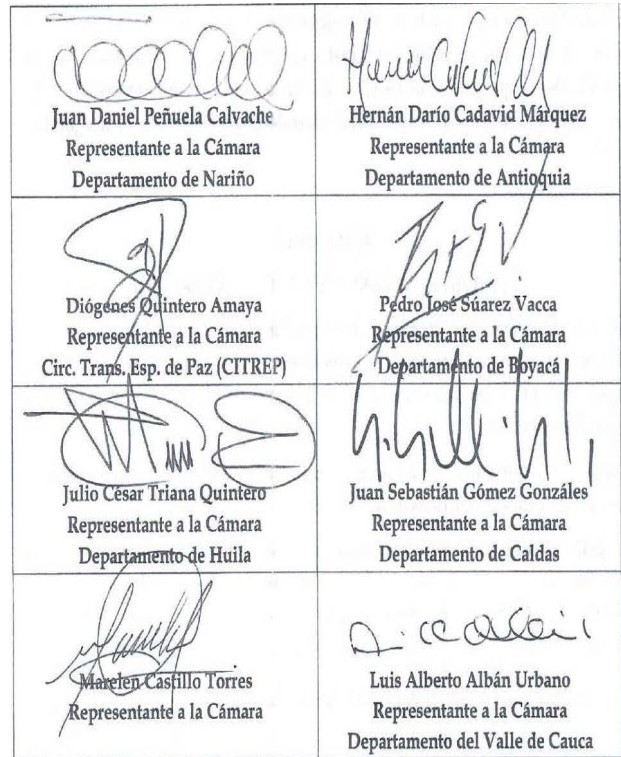 Juan Daniel Peñuela Calvache
Representante a la Cámara
Departamento de Nariño
Hernán Darío Cadavid Márquez
Representante a la Cámara
Departamento de Antioquia
Diógenes Quintero Amaya
Representante a la Cámara
Circ. Trans. Esp. de Paz (CITREP)
Pedro José Súarez Vacca
Representante a la Cámara
Departamento de Boyacá
Julio César Triana Quintero
Representante a la Cámara
Departamento de Huila
Juan Sebastián Gómez Gonzáles
Representante a la Cámara
Departamento de Caldas
Marelen Castillo Torres
Representante a la Cámara
Luis Alberto Albán Urbano
Representante a la Cámara
Departamento del Valle de Cauca